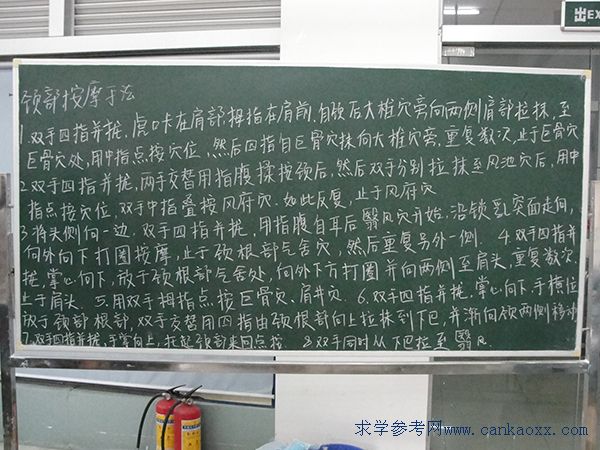 出EX
颈部按摩手法
1.双手四指并拢,虎口卡在肩部拇指在肩前,自颈后大椎穴旁向两侧肩部拉抹,至
巨骨穴处,用中指点按穴位,然后四指自巨骨穴抹向大椎穴旁,重复数次,止于巨骨穴
2.双手四指并拢,两手交替用指腹揉按颈后,然后双手分别拉抹至风池穴后,用中
指点按穴位,双手中指叠按风府穴.如此反复,止于风府穴
3.将头侧向一边.双手四指并拢,用指腹自耳后翳风穴开始,沿锁乳突面走向,
向外向下打圈按摩,止于颈根部气舍穴,然后重复另外一侧. 4.双手四指并
拢,掌心向下,放于颈根部气舍处,向外下方打圈并向两侧至肩头,重复数次
止于肩头. 5.用双手拇指点按巨骨穴、肩井穴. 6.双手四指并拢,掌心向下,手横位
放于颈部根部,双手交替用四指由颈根部向上拉抹到下巴,并渐向颈两侧移动
7.双手四指并拢,手掌向上,托起颈部来回点按 8.双手同时从下巴拉至翳风
求学参考网www.cankaoxx.com